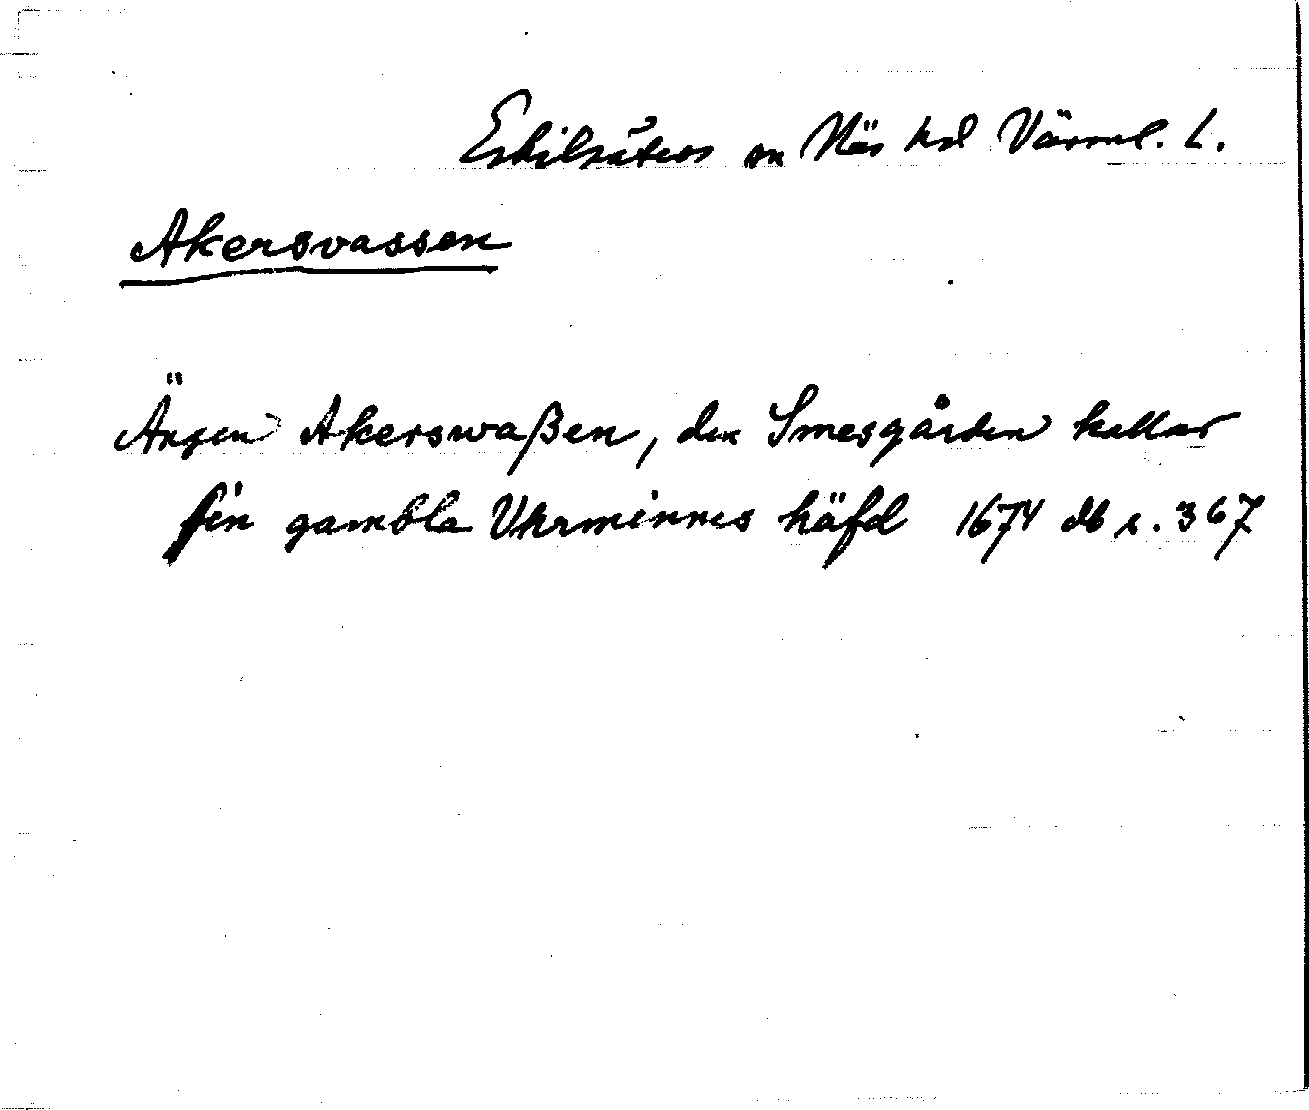 Eskilsäters sn Näs hd Värml. L.
Akersvassen
Ängen Akerswaßen, den Smesgården kallar
sin gambla Uhrminnes häfd 1674 db s. 367